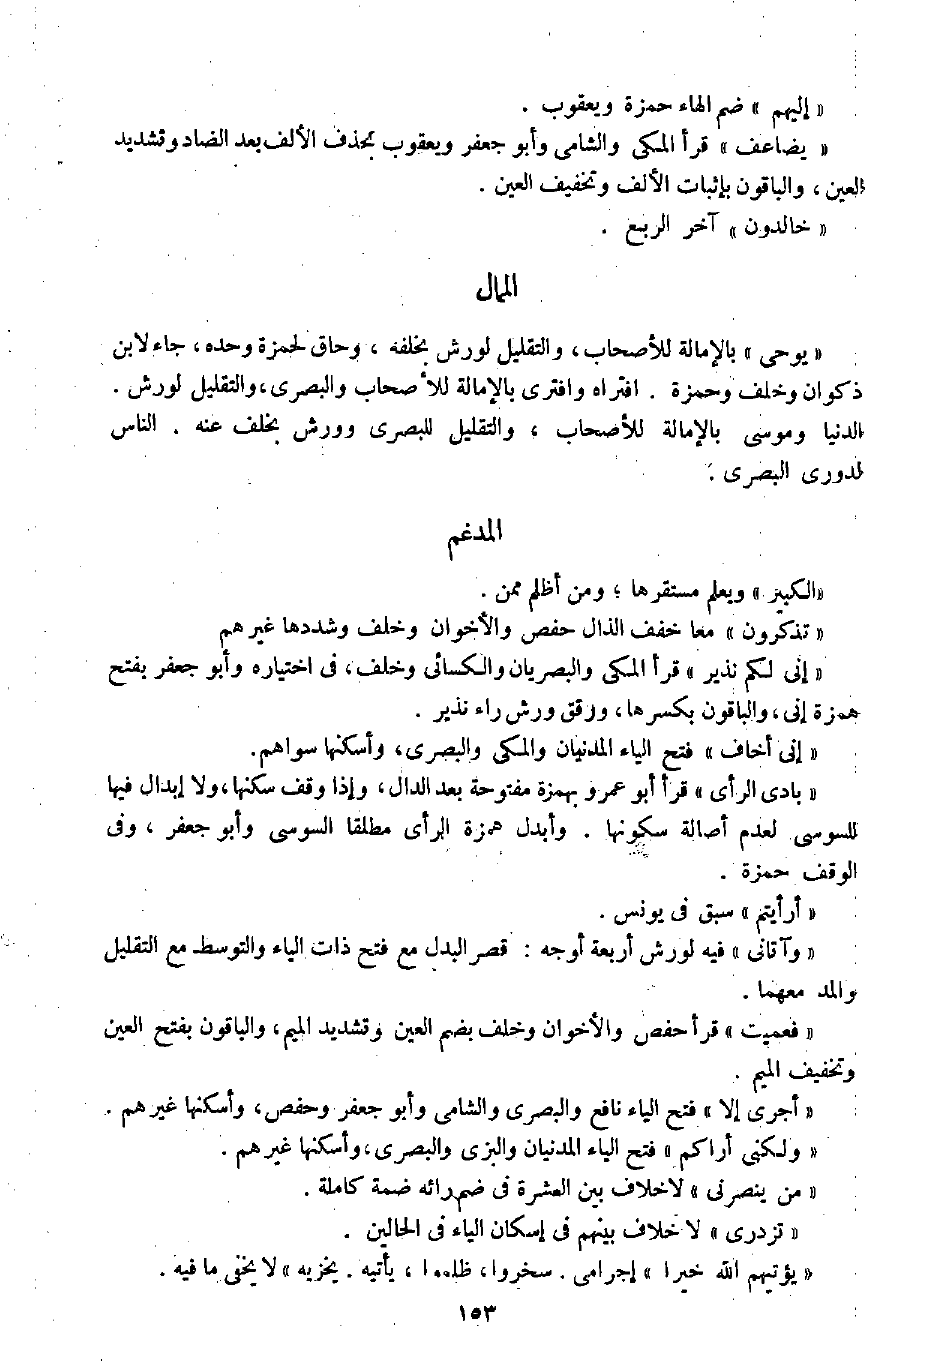 « إليهم » ضم الهاء حمزة ويعقوب .
« يضاعف » قرأ المكى والشامى وأبو جعفر ويعقوب بحذف الألف بعد الضاد وتشديد
العين ، والباقون بإثبات الألف وتخفيف العين .
« خالدون » آخر الربع .
الممال
« يوحى » بالإمالة للأصحاب ، والتقليل لورش بخلفه ، وحاق لحمزة وحده ، جاء لابن
ذكوان وخلف وحمزة . افتراه وافترى بالإمالة للأصحاب والبصرى ، والتقليل لورش .
الدنيا وموسى بالإمالة للأصحاب ، والتقليل للبصرى وورش بخلف عنه . الناس
لدورى البصرى .
المدغم
«الكبير » ويعلم مستقرها ؛ ومن أظلم ممن .
« تذكرون » معا خفف الذال حفص والأخوان وخلف وشددها غيرهم
« إنى لكم نذير » قرأ المكى والبصريان والكسائى وخلف ، فى اختياره وأبو جعفر بفتح
همزة إنى ، والباقون بكسرها ، ورقق ورش راء نذير .
« إنى أخاف » فتح الياء المدنيان والمكى والبصرى ، وأسكنها سواهم.
« بادى الرأى » قرأ أبو عمرو بهمزة مفتوحة بعد الدال ، وإذا وقف سكنها ، ولا إبدال فيها
للسوسى لعدم أصالة سكونها . وأبدل همزة الرأى مطلقا السوسى وأبو جعفر ، وفى
الوقف حمزة .
« أرأيتم » سبق فى يونس .
« وآتانى » فيه لورش أربعة أوجه : قصر البدل مع فتح ذات الياء والتوسط مع التقليل
والمد معهما .
« فعميت » قرأ حفص والأخوان وخلف بضم العين وتشديد الميم ، والباقون بفتح العين
وتخفيف الميم .
« أجرى إلا » فتح الياء نافع والبصرى والشامى وأبو جعفر وحفص ، وأسكنها غيرهم .
« ولكنى أراكم » فتح الياء المدنيان والبزى والبصرى ، وأسكنها غيرهم .
« من ينصرنى » لاخلاف بين العشرة فى ضم رائه ضمة كاملة .
« تزدرى » لا خلاف بينهم فى إسكان الياء فى الحالين .
« يؤتيهم الله خيرا » إجرامى . سخروا ، ظلموا ، يأتيه . يخزيه » لا يخفى ما فيه .
١٥٣